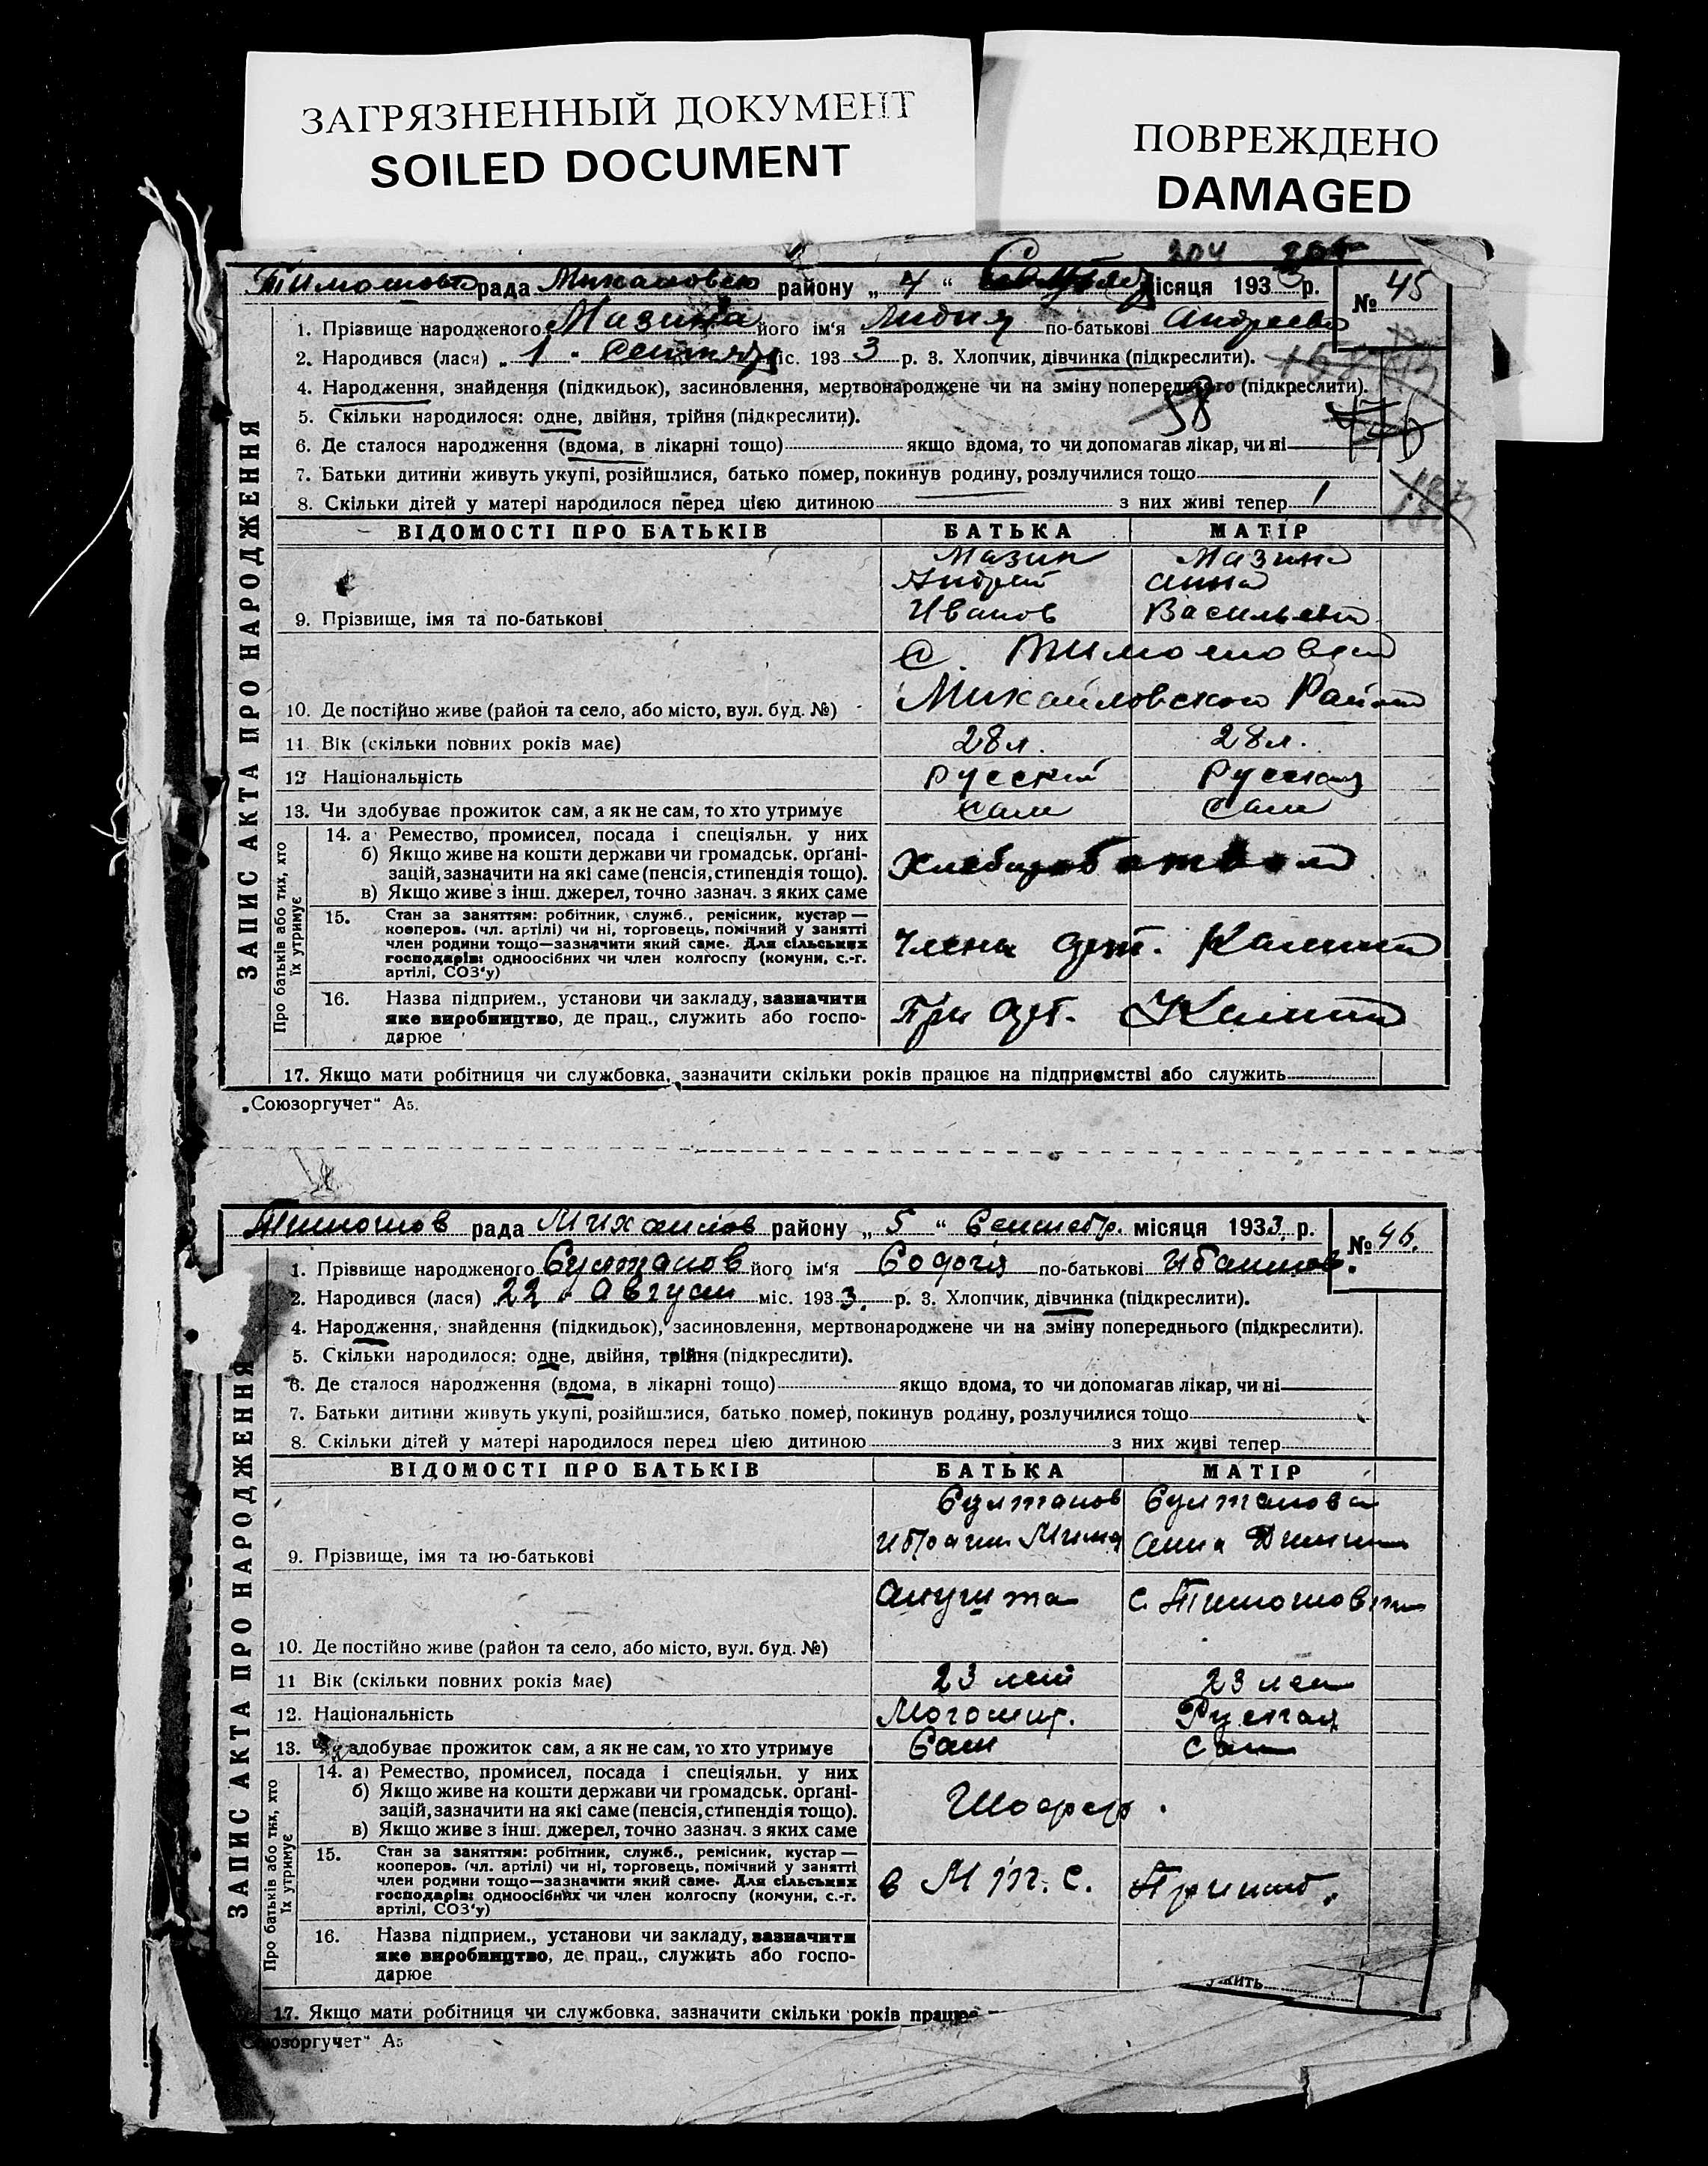 ЗАГРЯЗНЕННЫЙ ДОКУМЕНТ
SOILED DOCUMENT
ПОВРЕЖДЕНО
DAMAGED
204
рада району „ 4 “ місяця 1933 р. № 45
1. Прізвище народженого Мазина його ім'я Лидия по-батькові Андреевн
2. Народився (лася) „ 1 “ сентяб міс. 1933 р. 3. Хлопчик, дівчинка (підкреслити).
4. Народження, знайдення (підкидьок), засиновлення, мертвонароджене чи на зміну попереднього (підкреслити).
58
5. Скільки народилося: одне, двійня, трійня (підкреслити).
6. Де сталося народження (вдома, в лікарні тощо) якщо вдома, то чи допомагав лікар, чи ні
7. Батьки дитини живуть укупі, розійшлися, батько помер, покинув родину, розлучилися тощо
8. Скільки дітей у матері народилося перед цією дитиною з них живі тепер 1
ЗАПИС АКТА ПРО НАРОДЖЕННЯ
ВІДОМОСТІ ПРО БАТЬКІВ БАТЬКА МАТІР
Мазин Мазина
Андрей Анна
9. Прізвище, імя та по-батькові Иванов Васильевна
с. Тимошовка
10. Де постійно живе (район та село, або місто, вул. буд. №) Михайловского Района
11. Вік (скільки повних років має) 28 л. 28 л.
12 Національність Русский Русская
13. Чи здобуває прожиток сам, а як не сам, то хто утримує Сам Сам
Про батьків або тих, хто їх утримує
14. а Ремество, промисел, посада і спеціяльн. у них
б) Якщо живе на кошти держави чи громадськ. орґані-
зацій, зазначити на які саме (пенсія, стипендія тощо).
в) Якщо живе з інш. джерел, точно зазнач. з яких саме
15. Стан за заняттям: робітник, служб., ремісник, кустар —
кооперов. (чл. артілі) чи ні, торговець, помічний у занятті
член родини тощо—зазначити який саме. Для сільських
господарів: одноосібних чи член колгоспу (комуни, с.-г.
артілі, СОЗ'у)
Члены арт. Калинина
16. Назва підприєм., установи чи закладу, зазначити
яке виробництво, де прац., служить або госпо-
дарює
При арт. Калинина
17. Якщо мати робітниця чи службовка, зазначити скільки років працює на підприємстві або служить
„Союзоргучет“ А5.
Тимошов рада Михайлов району „ 5 “ Сентебр. місяця 1933. р. № 46.
1. Прізвище народженого Султанов його ім'я по-батькові
2. Народився (лася) 22 „ Август міс. 1933. р. 3. Хлопчик, дівчинка (підкреслити).
4. Народження, знайдення (підкидьок), засиновлення, мертвонароджене чи на зміну попереднього (підкреслити).
5. Скільки народилося: одне, двійня, трійня (підкреслити).
6. Де сталося народження (вдома, в лікарні тощо) якщо вдома, то чи допомагав лікар, чи ні
7. Батьки дитини живуть укупі, розійшлися, батько помер, покинув родину, розлучилися тощо
8. Скільки дітей у матері народилося перед цією дитиною з них живі тепер
ЗАПИС АКТА ПРО НАРОДЖЕННЯ
ВІДОМОСТІ ПРО БАТЬКІВ БАТЬКА МАТІР
Султанов Султанова
9. Прізвище, імя та по-батькові Анна
с. Тимошовка
10. Де постійно живе (район та село, або місто, вул. буд. №)
11 Вік (скільки повних років має) 23 лет 23 лет
12. Національність Русская
13. Чи здобуває прожиток сам, а як не сам, то хто утримує Сам сам
Про батьків або тих, хто їх утримує
14. а) Ремество, промисел, посада і спеціяльн. у них
б) Якщо живе на кошти держави чи громадськ. орґані-
зацій, зазначити на які саме (пенсія, стипендія тощо).
в) Якщо живе з інш. джерел, точно зазнач. з яких саме
Шофер.
15. Стан за заняттям: робітник, служб., ремісник, кустар —
кооперов. (чл. артілі) чи ні, торговець, помічний у занятті
член родини тощо—зазначити який саме. Для сільських
господарів: одноосібних чи член колгоспу (комуни, с.-г.
артілі, СОЗ'у)
в М.Т.С.
16. Назва підприєм., установи чи закладу, зазначити
яке виробництво, де прац., служить або госпо-
дарює
17. Якщо мати робітниця чи службовка, зазначити скільки років працює
оюзоргучет“ А5